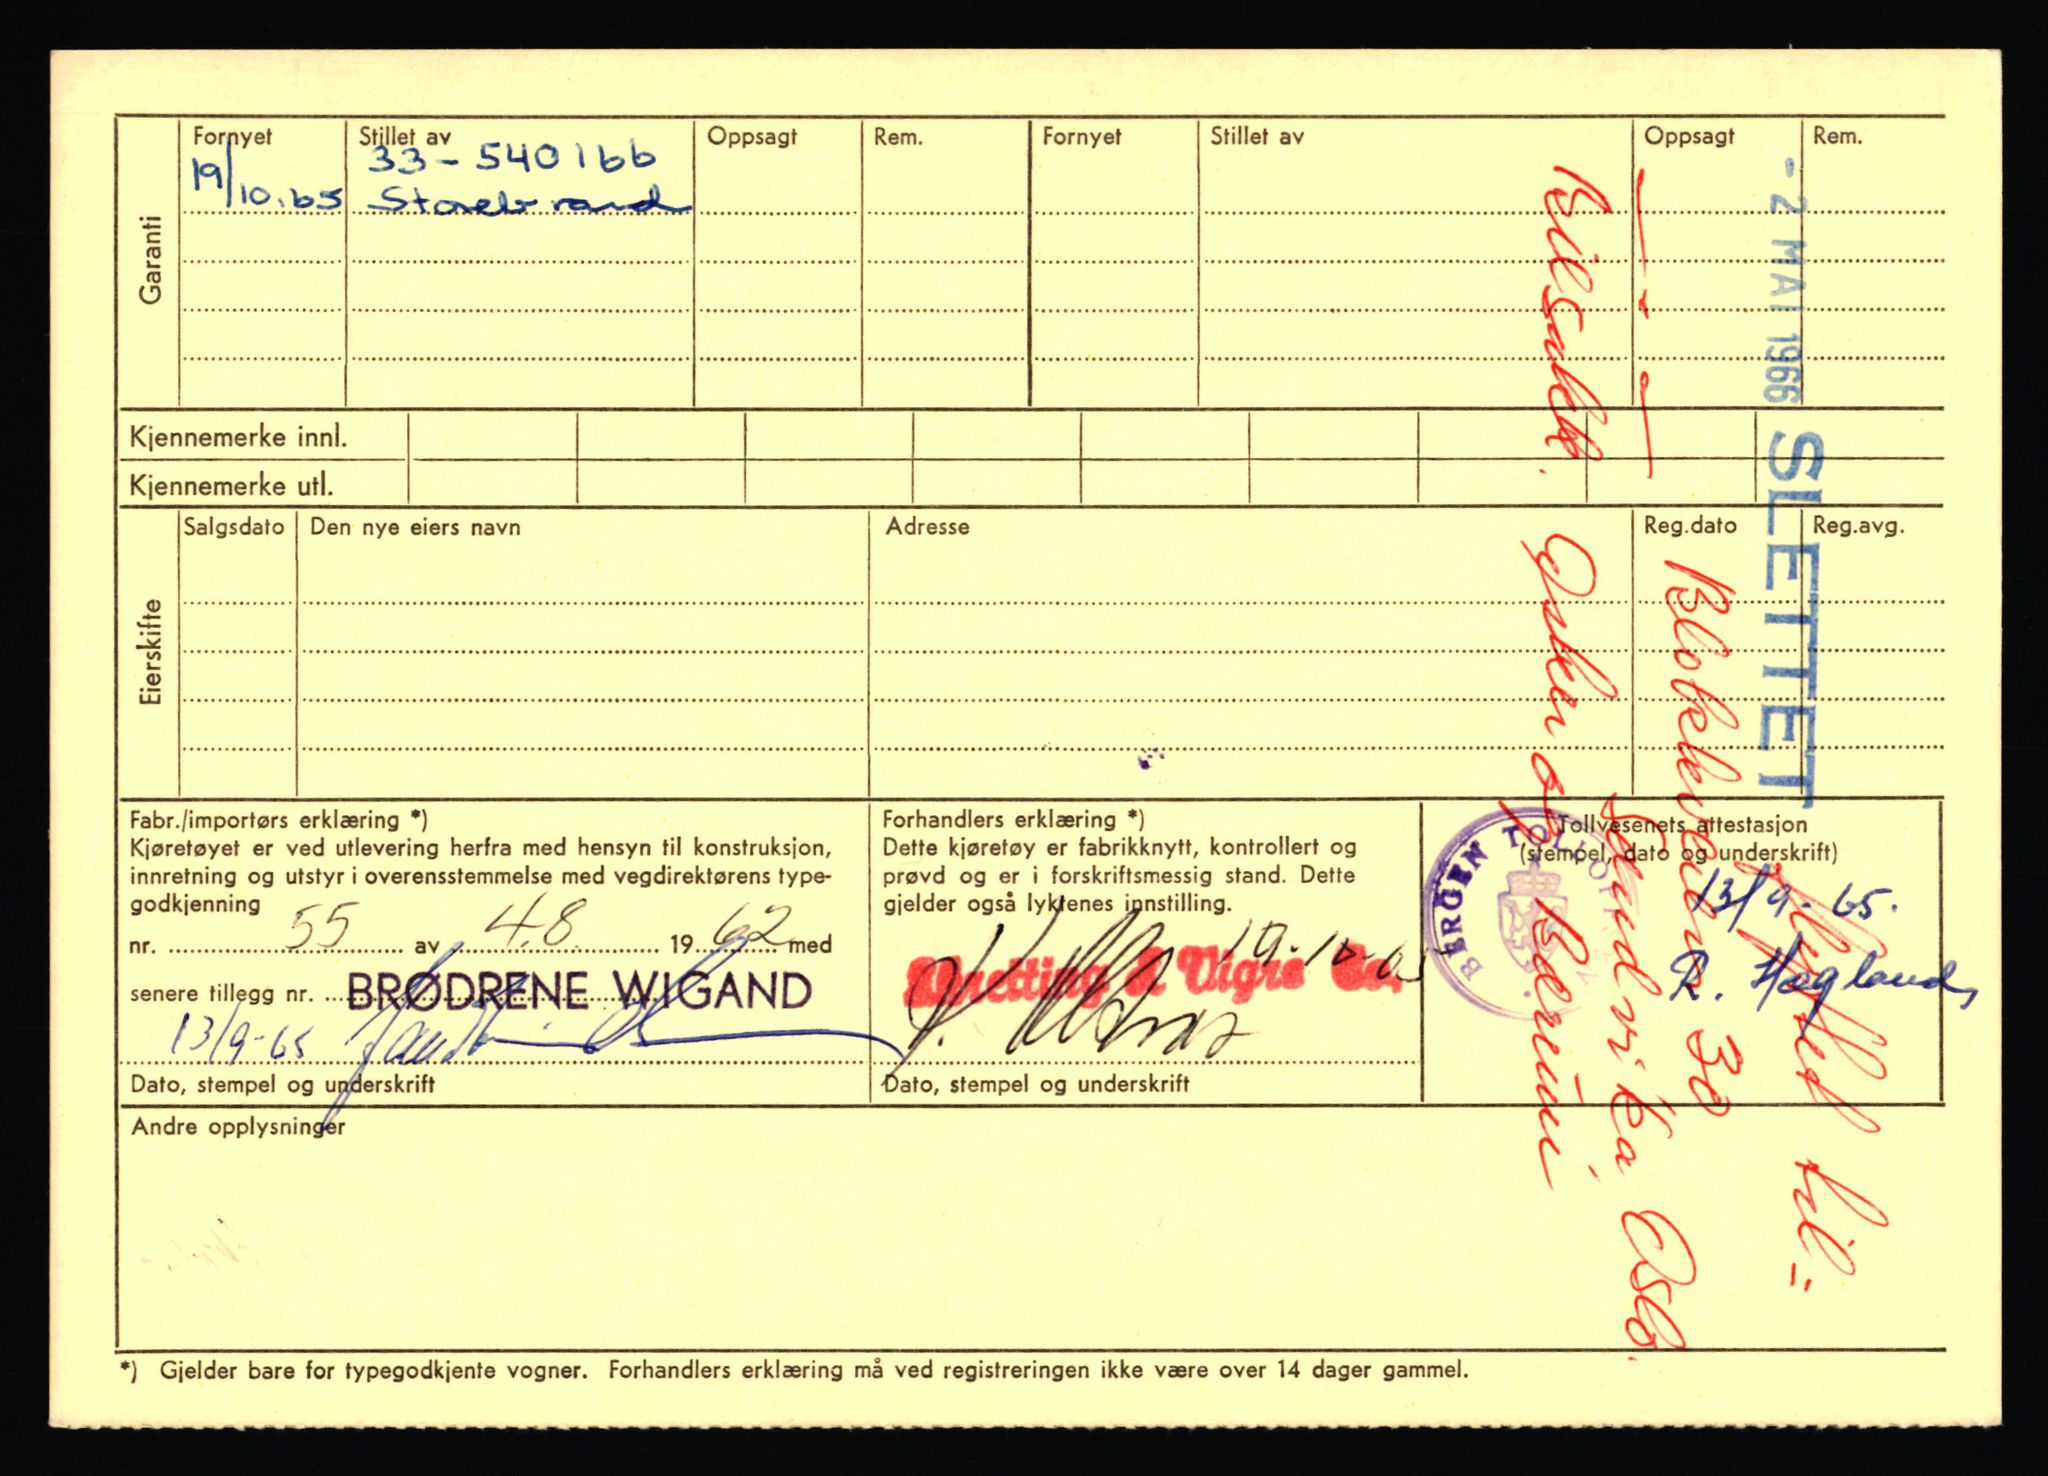 Garanti
Fornyet Stillet av Oppsagt Rem. Fornyet Stillet av Oppsagt Rem.
19/10.65 33-540166
Storebrand
Kjennemerke innl.
Kjennemerke utl.
Eierskifte
Salgsdato Den nye eiers navn Adresse Reg.dato Reg.avg.
Fabr./importørs erklæring *)
Kjøretøyet er ved utlevering herfra med hensyn til konstruksjon,
innretning og utstyr i overensstemmelse med vegdirektørens type-
godkjenning
nr. 55 av 4.8 1962 med
senere tillegg nr.
BRØDRENE WIGAND
13/9-65
Dato, stempel og underskrift
Forhandlers erklæring *)
Dette kjøretøy er fabrikknytt, kontrollert og
prøvd og er i forskriftsmessig stand. Dette
gjelder også lyktenes innstilling.
19-10-65
& Vigre Co.
Dato, stempel og underskrift
Tollvesenets attestasjon
(stempel, dato og underskrift)
BERGEN
13/9-65.
R. Hogland
Andre opplysninger
*) Gjelder bare for typegodkjente vogner. Forhandlers erklæring må ved registreringen ikke være over 14 dager gammel.
- 2 MAI 1966 SLETTET
til:
30
Sandvika Oslo.
Bilsakk. Asker og Bærum